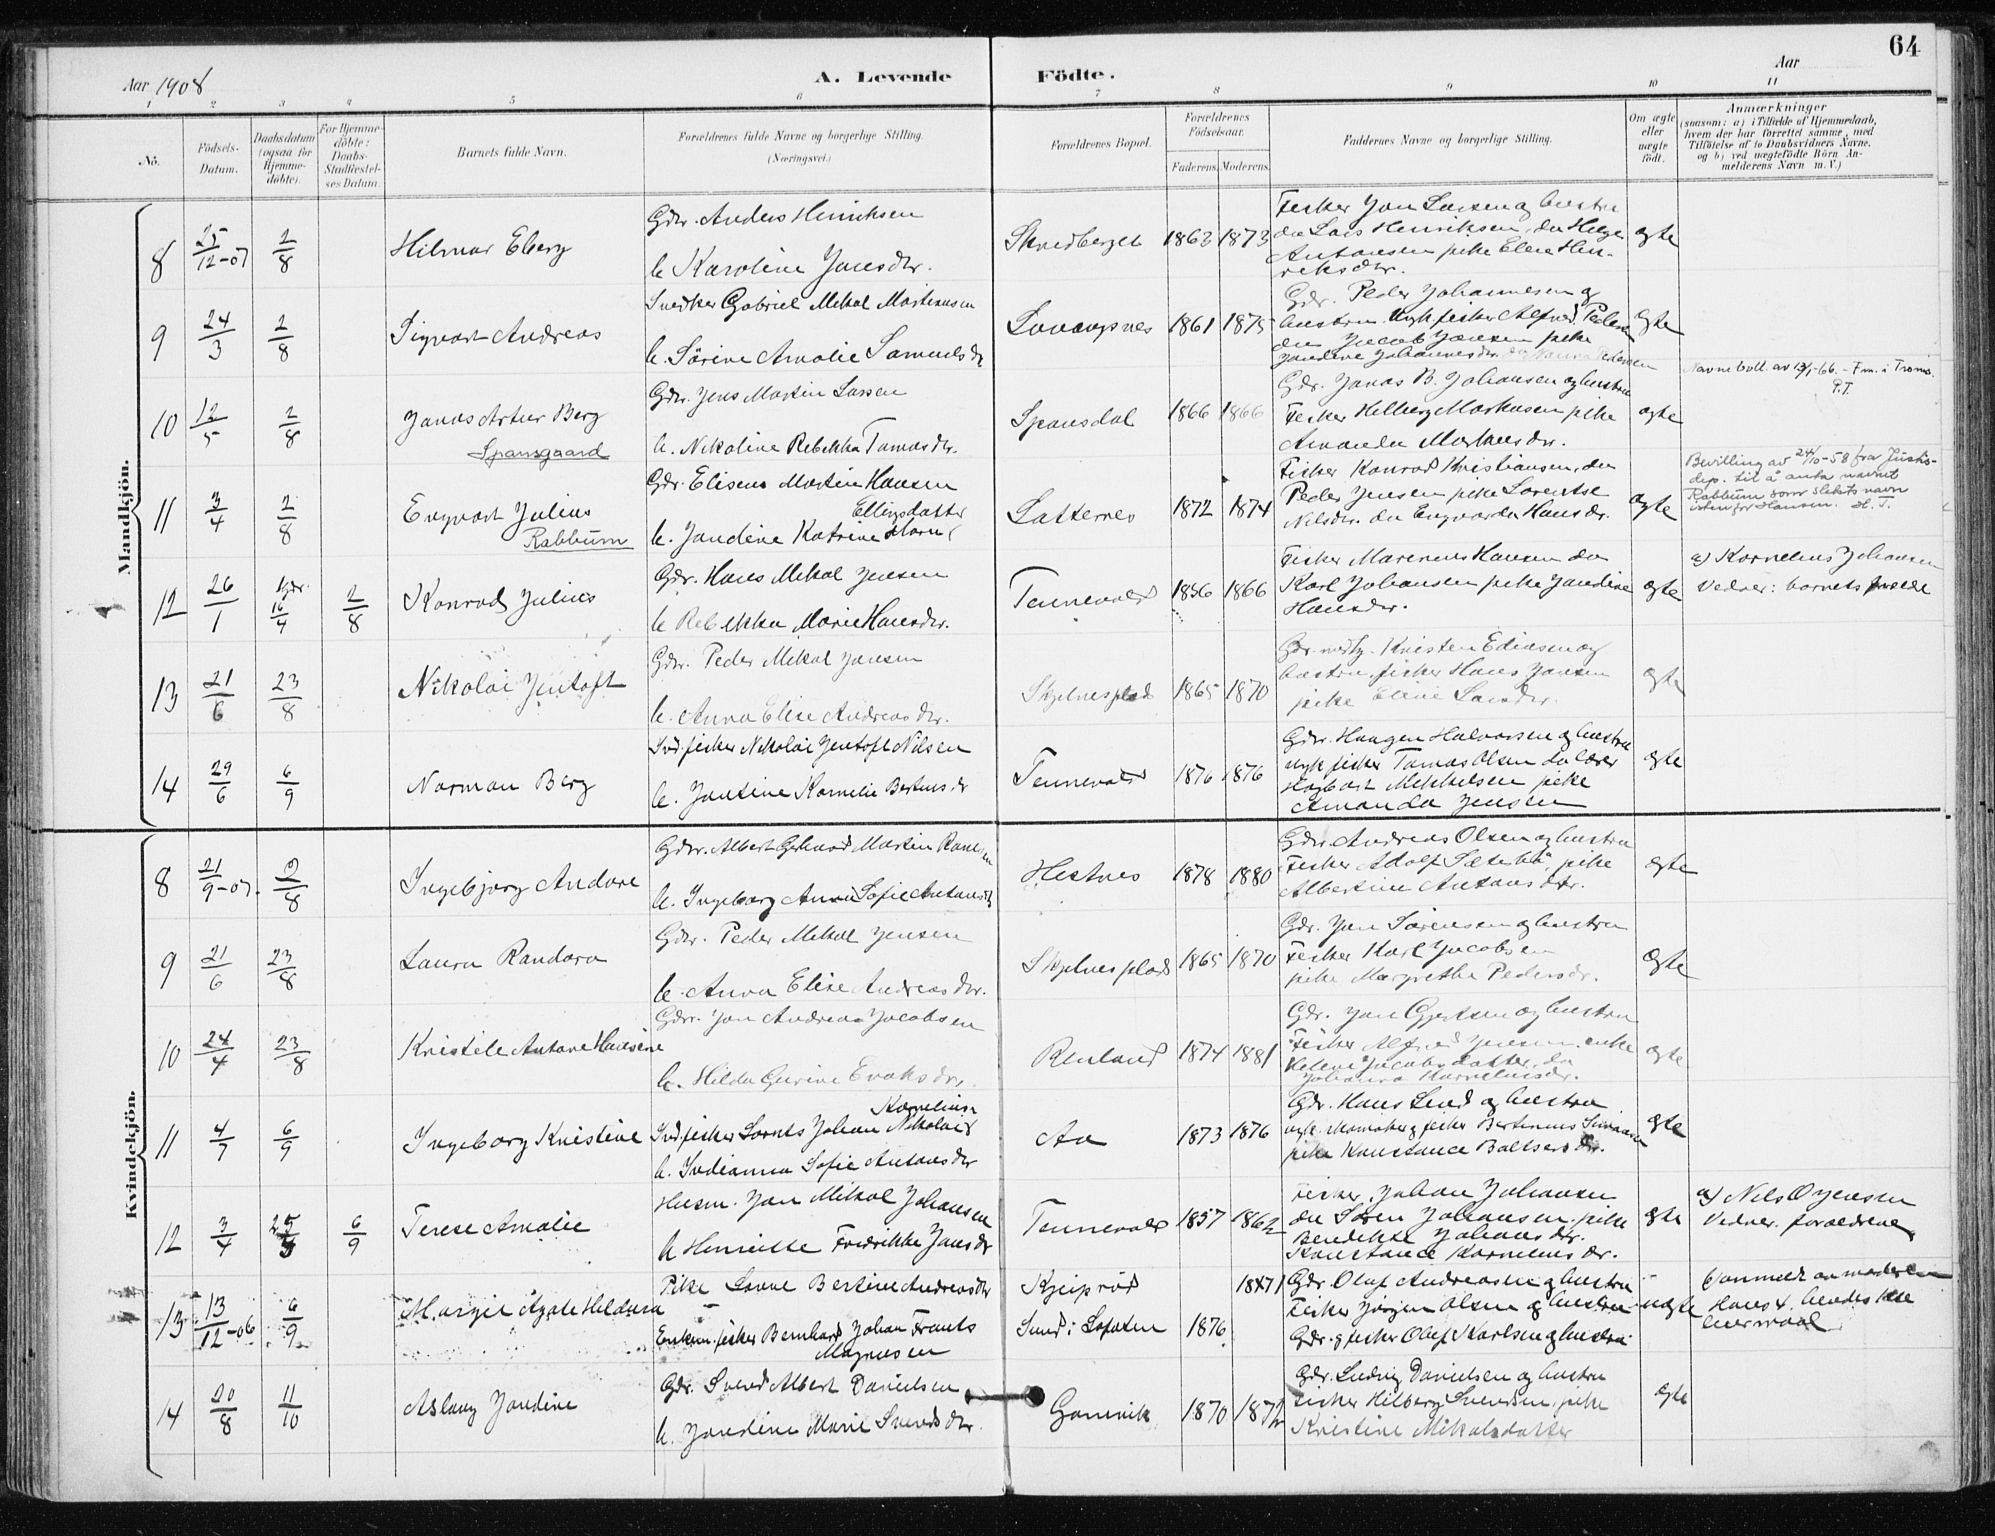 64
Aar 1908
A. Levende Födte.
Aar
1 2 3 4 5 6 7 8 9 10 11
No.
Födsels-Datum.
Daabsdatum (ogsaa for Hjemme-döbte).
For Hjemme-döbte: Daabs-Stadfæstel-ses Datum.
Barnets fulde Navn.
Forældrenes fulde Navne og borgerlige Stilling. (Næringsvei.)
Forældrenes Bopæl.
Forældrenes Födselsaar.
Faderens. Moderens.
Faddernes Navne og borgerlige Stilling.
Om ægte eller uægte födt.
Anmærkninger
(saasom: a) i Tilfælde af Hjemmedaab, hvem der har forrettet samme, med Tilföielse af to Daabsvidners Navne, og b) ved uægtefödte Börn An-melderens Navn m. V.)
Mandkjön.
8 25/12-07 2/8 Hilmar Eberg
Gdr. Anders Henriksen
h. Karoline Jansdtr.
1863 1873
Fisker Jon Larsen og hustru
du Lars Henriksen, du Helge
Antonsen pike Eline Hen-
riksdtr.
ægte
9 24/3 2/8 Sigvart Andreas
Snedker Gabriel Mikal Martinusen
h. Sörine Amalie Samuelsdtr
1861 1875
Gdr. Peder Johannesen og
hustru. Ungk. fisker Alfred Pedersen
du Jacob Jansen pike
ægte
10 12/5 2/8 Jonas Artur Berg
Spansgaard
Gdr. Jens Martin Larsen
h. Nikoline Rebekka Tomasdtr.
Spansdal 1866 1866
Gdr. Jonas B. Johansen og hustru
Fisker Hilberg Markusen pike
Amanda Markusdtr.
ægte
Navnebevill. av 13/1-66. - Fm. i Troms.
P.T.
11 3/4 2/8 Engvart Julius
Rabbum
Gdr. Eliseus Martin Hansen
Ellingsdatter
h. Jandine Katrine
Latternes 1872 1874
Fisker Konrad Kristiansen, du
Peder Jensen pike Lorentse
Nilsdtr. du Engvarda Hansdr.
ægte
Bevilling av 24/10-58 fra Justis-
dep. til å anta navnet
Rabbum som slektsnavn
istenfor Hansen. H.T.
12 26/1 hjdr. 16/4 2/8 Konrad Julius
Gdr. Hans Mikal Jensen
h Rebekka Marie Hansdtr.
Tennevold 1856 1866
Fisker Marenius Hansen du
Karl Johansen pike Jandine
Hansdtr.
ægte
a) Kornelius Johansen
Vidner: barnets forælde
13 21/6 23/8 Nikolai Jentoft
Gdr. Peder Mikal Jensen
h. Anna Elise Andreasdtr.
Skjelnesplad 1865 1870
Gdr. Kristen Ediasen og
hustru fisker Hans Jansen
pike Eline Larsdtr.
ægte
14 29/6 6/9 Norman Berg
Ind. fisker Nikolai Jentoft Nilsen
h. Jentine Kornelie Bertinsdr
Tennevold 1876 1876
Gdr. Haagen Halvorsen og hustru
ungk fisker Tomas Olsen du lærer
Hagbart Mikkelsen pike
Amanda Jensen
ægte
Kvindekjön.
8 21/9-07. 2/8 Ingebjørg Andore
Gdr. Albert Gerhard Martin
h. Ingeborg Anna Sofie Antonsdtr
Hestnes 1878 1880
Gdr. Andreas Olsen og hustru
Fisker Adolf Sæterbö, pike
Albertine Antonsdtr.
ægte
9 21/6 23/8 Laura Randora
Gdr. Peder Mikal Jensen
h. Anna Elise Andreasdtr.
Skjelnesplad 1865 1870
Gdr. Jon Sörensen og hustru
Fisker Karl Jacobsen
pike Margrethe Pedersdr.
ægte
10 24/4 23/8 Kristele Antone Hansine
Gdr. Jon Andreas Jacobsen
h. Hilda Gurine Enoksdtr.
Renland 1874 1881
Gdr. Jon Gjertsen og hustru
Fisker Alfred Jensen enke
Helene Jacobsdatter, du
Johanna Korneliusdr.
ægte
11 4/7 6/9 Ingeborg Kristine
Kornelius
Ind. fisker Lorents Johan Nikolai
h. Indianna Sofie Antonsdtr
Aa 1873 1876
Gdr. Hans Lind og hustru
ungk. skomaker & fisker Bertinus Simonsen
pike Konstance Baltsersdr.
ægte
12 3/4 6/9 Terese Amalie
Husm. Jon Mikal Johansen
h Henriette Fredrikke Jansdtr
Tennevold 1857 1862
Fisker, Johan Johansen
du Sören Johansen, pike
Benedikte Johansdtr.
Konstance Korneliusdr.
ægte
a) Nils O Jensen
Vidner. forældrene
13 13/12-06 6/9 Margit Agate Hildura
Pike Lovise Bertine Andreasdtr
Enkem. fisker Bernhard Johan Frants
Magnusen
Kjeiprød 1871
Sund i Lofoten 1876
Gdr. Oluf Andreasen og hustru
Fisker Jörgen Olsen og hustru
Gdr. & fisker Oluf Karlsen og hustru
uægte
b) anmeldt av moderen
14 20/8 11/10 Aslaug Jandine
Gdr. Svend Albert Danielsen
h. Jandine Marie Svendsdtr.
Gamvik 1870 1872
Gdr. Ludvig Danielsen og hustru
Fisker Hilberg Svendsen, pike
Kristine Mikalsdatter
ægte